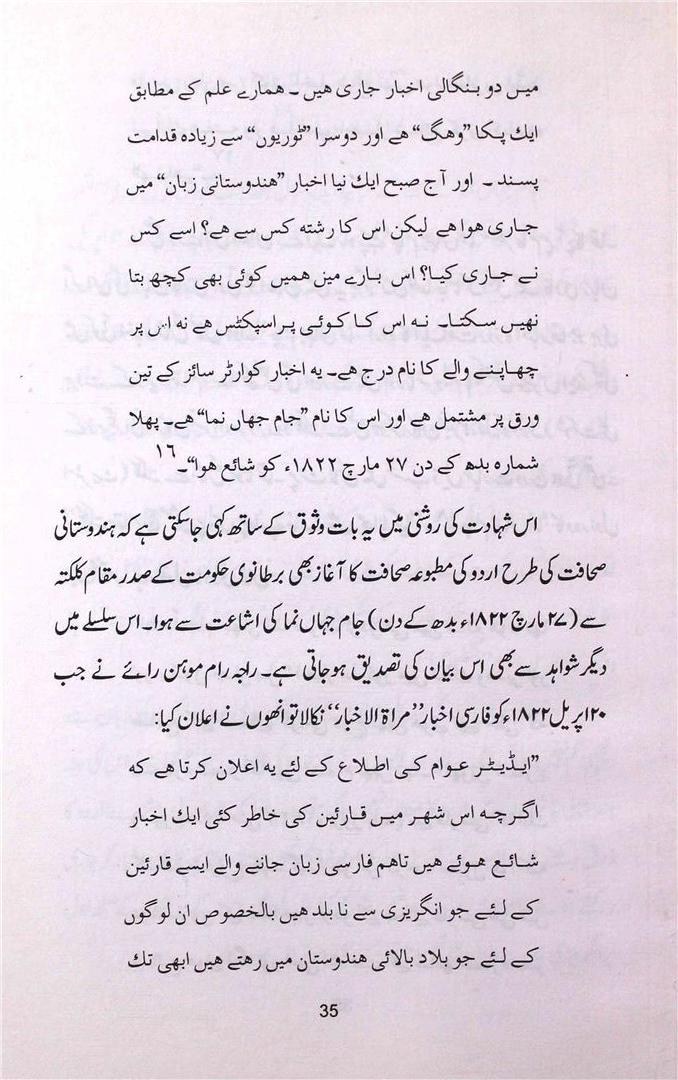 میں دو بنگالی اخبار جاری هیں ۔ همارے علم کے مطابق
ایك پکا ”وهگ“ هے اور دوسرا ”ٹوریون“ سے زیادہ قدامت
پسند ۔ اور آج صبح ایك نیا اخبار ”هندوستانی زبان“ میں
جاری هوا هے لیکن اس کا رشته کس سے هے؟ اسے کس
نے جاری کیا؟ اس بارے مین همیں کوئی بھی کچھ بتا
نهیں سکتا۔ نه اس کا کوئی پراسپکٹس هے نه اس پر
چھاپنے والے کا نام درج هے۔ یه اخبار کوارٹر سائز کے تین
ورق پر مشتمل هے اور اس کا نام ”جام جهاں نما“ هے۔ پهلا
شمارہ بدھ کے دن ۲۷ مارچ ۱۸۲۲ء کو شائع هوا“۔ ۱۶
اس شہادت کی روشنی میں یہ بات وثوق کے ساتھ کہی جاسکتی ہے کہ ہندوستانی
صحافت کی طرح اردو کی مطبوعہ صحافت کا آغاز بھی برطانوی حکومت کے صدر مقام کلکتہ
سے (۲۷ مارچ ۱۸۲۲ء بدھ کے دن) جام جہاں نما کی اشاعت سے ہوا۔ اس سلسلے میں
دیگر شواہد سے بھی اس بیان کی تصدیق ہوجاتی ہے۔ راجہ رام موہن رائے نے جب
۲۰ اپریل ۱۸۲۲ء کو فارسی اخبار ”مراۃ الاخبار“ نکالا تو انھوں نے اعلان کیا:
”ایڈیٹر عوام کی اطلاع کے لئے یه اعلان کرتا هے که
اگرچه اس شهر میں قارئین کی خاطر کئی ایك اخبار
شائع هوئے هیں تاهم فارسی زبان جاننے والے ایسے قارئین
کے لئے جو انگریزی سے نا بلد هیں بالخصوص ان لوگوں
کے لئے جو بلاد بالائی هندوستان میں رهتے هیں ابھی تك
35